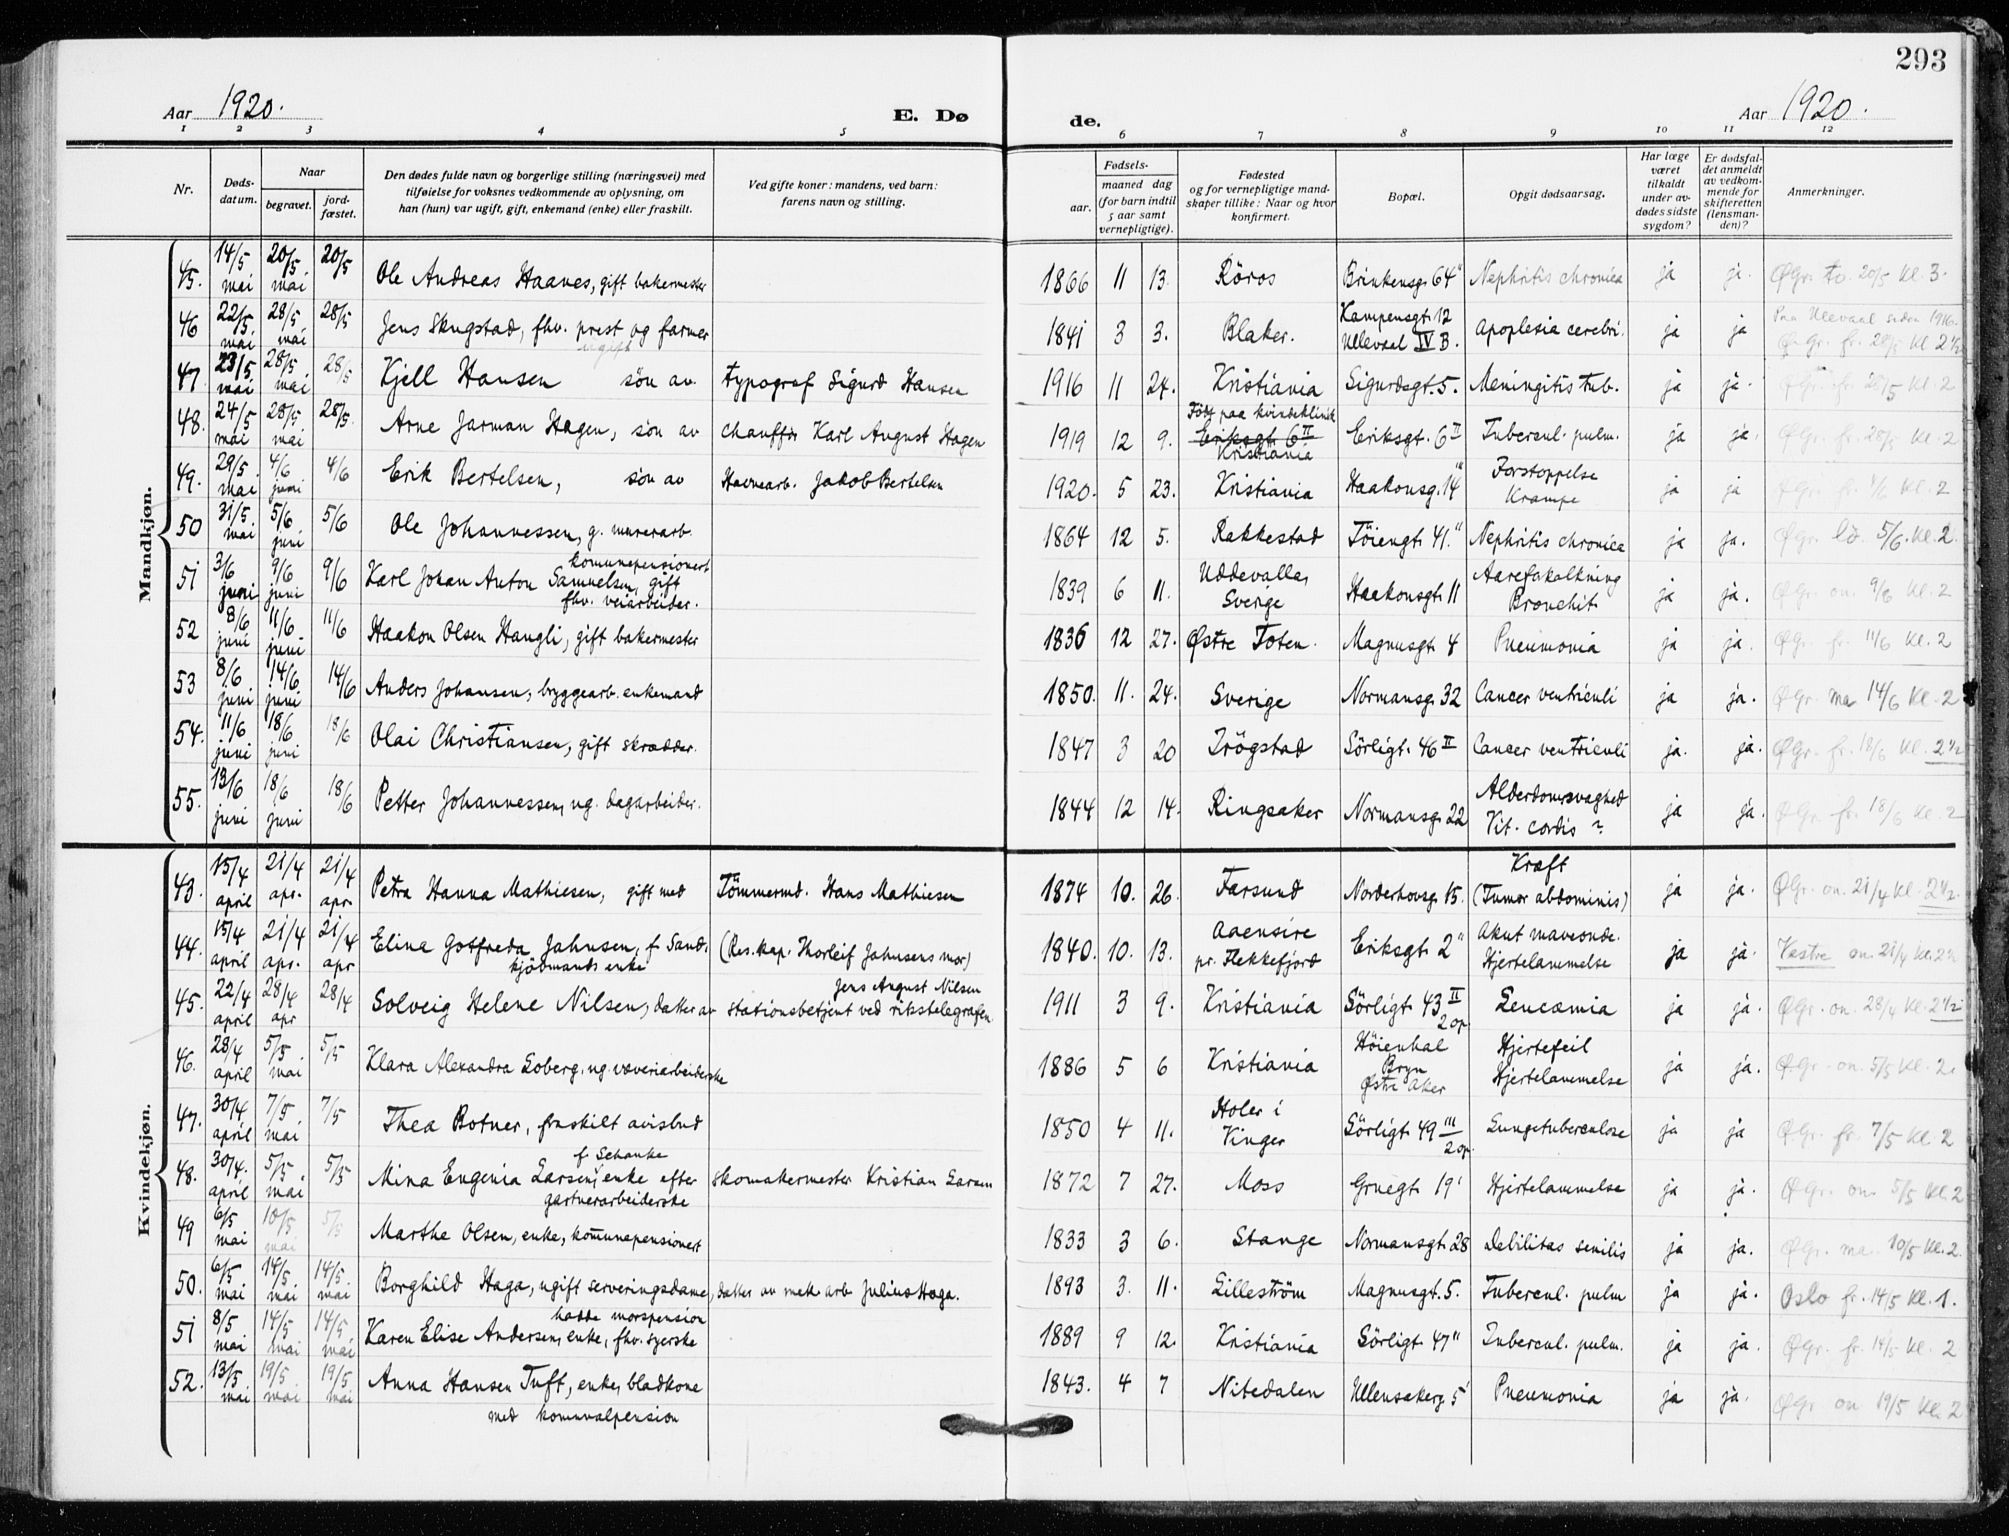 293
Aar 1920.
E. Dø
de.
Aar 1920.
1 2 3 4 5 6 7 8 9 10 11 12
Nr.
Døds-
datum.
Naar
begravet.
jord-
fæstet.
Den dødes fulde navn og borgerlige stilling (næringsvei) med
tilføielse for voksnes vedkommende av oplysning, om
han (hun) var ugift, gift, enkemand (enke) eller fraskilt.
Ved gifte koner: mandens, ved barn:
farens navn og stilling.
Fødsels-
aar.
maaned dag
(for barn indtil
5 aar samt
vernepligtige).
Fødested
og for vernepligtige mand-
skaper tillike: Naar og hvor
konfirmert.
Bopæl.
Opgit dødsaarsag.
Har læge
været
tilkaldt
under av-
dødes sidste
sygdom?
Er dødsfal-
det anmeldt
av vedkom-
mende for
skifteretten
(lensman-
den)?
Anmerkninger.
Mandkjøn.
45. 14/5 mai 20/5 mai 20/5 Ole Andreas Haanes, gift bakermester 1866 11 13. Röros Brinkensg. 64" Nephritis chronica ja ja. ØGr. to. 20/5 Kl. 3.
46 22/5 mai 28/5 mai 28/5 Jens Skugstad, fhv. prest og farmer ugift 1841 3 3. Blaker. Kampensgt. 12 Ullevaal IV B. Apoplesia cerebri. ja ja Paa Ulevaal siden 1916. ØGr. fr. 28/5 Kl 2 1/2
47 23/5 mai 28/5 mai 28/5 Kjell Hansen søn av typograf Sigurd Hansen 1916 11 24. Kristiania Sigurdsgt. 5. Meningitis tub. ja ja. ØGr. fr. 28/5 Kl. 2
48. 24/5 mai 28/5 mai 28/5. Arne Jarman Hagen, søn av chauffør Karl August Hagen 1919 12 9. Født paa kvindeklinik Eriksgt. 6 II Kristiania Eriksgt. 6 II Tubercul. pulm. ja ja. ØGr. fr. 28/5 Kl. 2
49. 29/5 mai 4/6 juni 4/6 Erik Bertelsen, søn av Havnearb. Jakob Bertelsen 1920. 5 23. Kristiania Haakonsg. 14 Forstoppelse Krampe ja ja ØGr. fr. 4/6 Kl. 2
50 31/5 mai 5/6 juni 5/6 Ole Johannessen, g. murerarb. 1864 12 5. Rakkestad Töiengt. 41." Nephritis chronica ja ja. ØGr. lö. 5/6. Kl. 2.
51 3/6 juni 9/6 juni 9/6 Karl Johan Anton Samuelsen, gift kommunepensionert fhv. veiarbeider. 1839 6 11. Uddevalla, Sverige Haakonsgt. 11 Aareforkalkning Bronchit. ja ja. ØGr. on. 9/6 Kl. 2
52 8/6 juni 11/6 juni 11/6 Haakon Olsen Haugli, gift bakermester 1836 12 27. Østre Toten. Magnusgt. 4 Pneumonia ja ja. ØGr. fr. 11/6 Kl. 2
53 8/6 juni 14/6 juni 14/6 Anders Johansen, bryggearb. enkemand 1850. 11. 24. Sverige Normansg. 32 Cancer ventriculi ja ja. ØGr. ma 14/6 Kl. 2
54. 11/6 juni 18/6 juni 18/6 Olai Christiansen, gift skrædder. 1847 3 20 Trögstad Sörligt. 46 II Cancer ventriculi ja. ja. ØGr. fr. 18/6 Kl. 2 1/2
55. 13/6 juni 18/6 juni 18/6 Petter Johannessen, ug. dagarbeider. 1844 12 14. Ringsaker Normansg. 22 Alderdomssvaghed Vit. cordis ? ja ja. ØGr. fr. 18/6 Kl. 2
Kvindekjøn.
43. 15/4 april 21/4 apr. 21/4 apr. Petra Hanna Mathiesen, gift med Tömmermd. Hans Mathiesen 1874 10. 26. Farsund Norderhovsg. 15. Kræft (Tumor abdominis) ja ja. ØGr. on. 21/4 Kl. 2 1/2.
44. 15/4 april 21/4 apr. 21/4 apr Elina Gotfreda Jahnsen, f. Sand. kjöbmands enke (Res. kap. Thorleif Jahnsens mor) 1840. 10. 13. Aaensire pr. Flekkefjord Eriksgt. 2" Akut maveonde. Hjertelammelse ja ja. Vestre on. 21/4 Kl. 2 1/2
45. 22/4 april 28/4 apr 28/4 Solveig Helene Nilsen, datter av Jens August Nilsen stationsbetjent ved rikstelegrafen 1911 3 9. Kristiania Sörligt. 43 II 2 op. Leucæmia ja ja. ØGr. on. 28/4 Kl. 2 1/2
46. 28/4 april 5/5 mai 5/5 Klara Alexandra Soberg, ug. væveriarbeiderske 1886 5 6 Kristiania Höienhal Bryn Østre Aker Hjertefeil Hjertelammelse ja ja. ØGr. on. 5/5 Kl. 2.
47. 30/4 april 7/5 mai 7/5 Thea Botner, fraskilt avisbud 1850 4 11. Holer i Vinger Sörligt. 49 III 2 op. Lungetuberculose ja ja ØGr. fr. 7/5 Kl. 2
48. 30/4. april 5/5 mai 5/5 Mina Eugenia Larsen, f. Schanke enke efter gartnerarbeiderske skomakermester Kristian Larsen 1872 7 27. Moss Gruegt. 19' Hjertelammelse ja ja. ØGr. on. 5/5 Kl. 2
49 6/5 mai 10/5 mai 5/5 Marthe Olsen, enke, kommunepensionert 1833 3 6. Stange Normansgt. 28 Debilitas senilis ja ja. ØGr. ma. 10/5 Kl. 2.
50. 6/5 mai 14/5. mai 14/5. mai Borghild Haga, ugift serveringsdame, datter av mek. arb. Julius Haga. 1893 3. 11. Lilleström Magnusgt. 5. Tubercul. pulm ja ja. Oslo fr. 14/5 Kl. 1.
51 8/5 mai 14/5 mai 14/5. mai Karen Elise Andersen, enke, fhv. syerske hadde morspension 1889 9 12. Kristiania Sörligt. 47" Tubercul. pulm. ja ja. ØGr. fr. 14/5 Kl. 2
52. 13/5 mai 19/5 mai 19/5 mai Anna Hansen Tuft, enke, bladkone med kommunalpension 1843. 4 7 Nitedalen Ullensakerg. 5' Pneumonia ja ja. ØGr on 19/5 Kl. 2